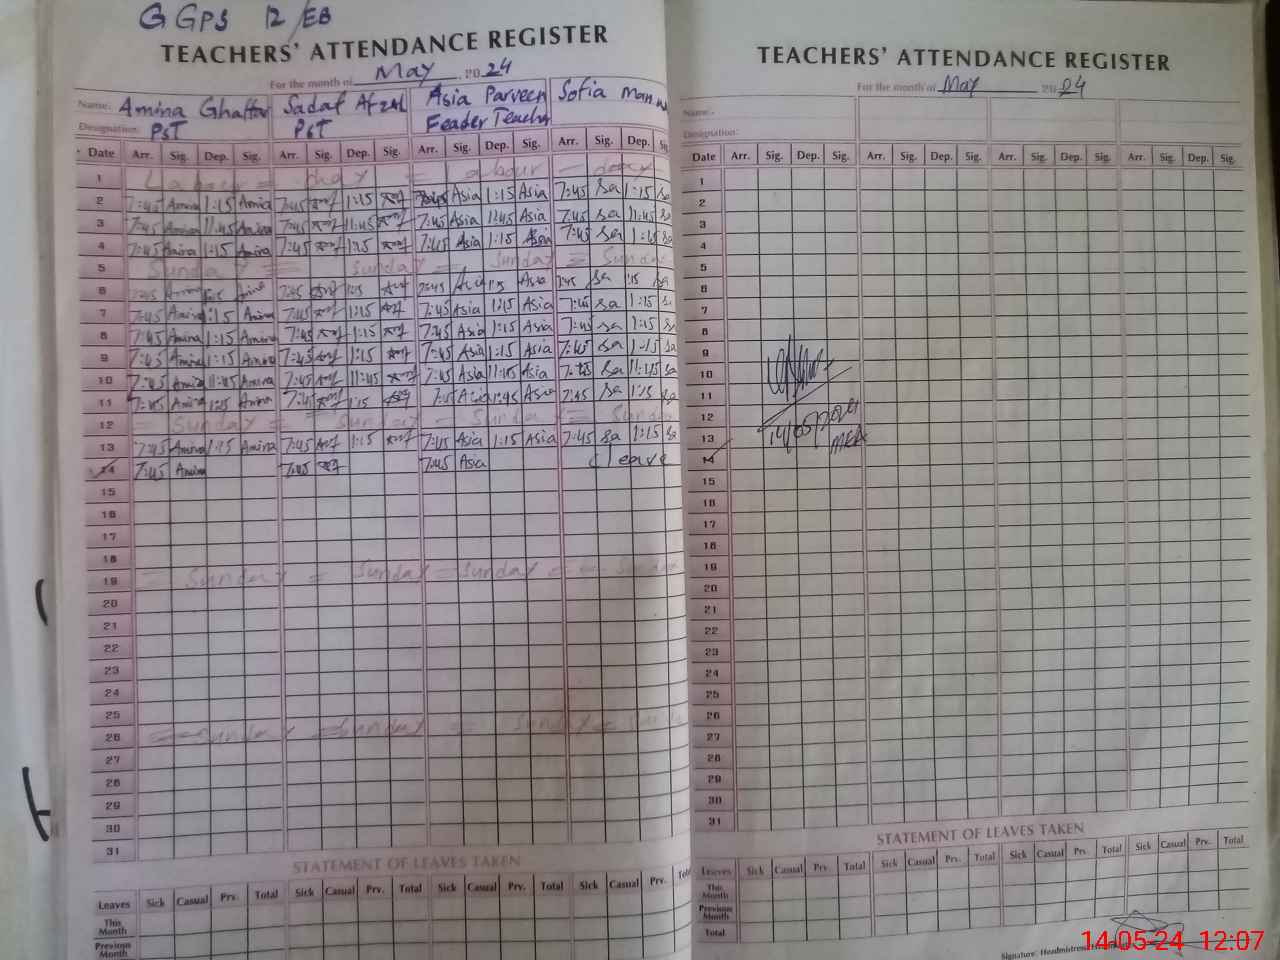 G GPS 12/EB
TEACHERS' ATTENDANCE REGISTER
For the month of May 2024
Name: Amina Ghaffar Sadaf Afzal Asia Parveen Sofia
Designation: PST PST Feader Teacher
Date Arr. Sig. Dep. Sig. Arr. Sig. Dep. Sig. Arr. Sig. Dep. Sig. Arr. Sig. Dep. Sig.
1 Labour = day = labour - day
2 7:45 Amina 1:15 Amina 7:45 1:15 7:45 Asia 1:15 Asia 7:45 Sa 1:15 Sa
3 7:45 Amina 11:45 Amina 7:45 11:45 7:45 Asia 11:45 Asia 7:45 Sa 11:45 Sa
4 7:45 Amina 1:15 Amina 7:45 1:15 7:45 Asia 1:15 Asia 7:45 Sa 1:15 Sa
5 Sunday = Sunday = Sunday = Sunday
6 7:45 Amina 1:15 Amina 7:45 1:15 7:45 Asia 1:15 Asia 7:45 Sa 1:15 Sa
7 7:45 Amina 1:15 Amina 7:45 1:15 7:45 Asia 1:15 Asia 7:45 Sa 1:15 Sa
8 7:45 Amina 1:15 Amina 7:45 1:15 7:45 Asia 1:15 Asia 7:45 Sa 1:15 Sa
9 7:45 Amina 1:15 Amina 7:45 1:15 7:45 Asia 1:15 Asia 7:45 Sa 1:15 Sa
10 7:45 Amina 11:45 Amina 7:45 11:45 7:45 Asia 11:45 Asia 7:45 Sa 11:45 Sa
11 7:45 Amina 1:15 Amina 7:45 1:15 7:45 Asia 1:45 Asia 7:45 Sa 1:15 Sa
12 = Sunday = Sunday - Sunday = Sunday
13 7:45 Amina 1:15 Amina 7:45 1:15 7:45 Asia 1:15 Asia 7:45 Sa 1:15 Sa
14 7:45 Amina 7:45 7:45 Asia leave
15
16
17
18
19 = Sunday = Sunday = Sunday = Sunday
20
21
22
23
24
25
26 = Sunday = Sunday = Sunday =
27
28
29
30
31
STATEMENT OF LEAVES TAKEN
Leaves Sick Casual Prv. Total Sick Casual Prv. Total Sick Casual Prv. Total Sick Casual Prv.
This Month
Previous Month
TEACHERS' ATTENDANCE REGISTER
For the month of May 2024
Name:
Designation:
Date Arr. Sig. Dep. Sig. Arr. Sig. Dep. Sig. Arr. Sig. Dep. Sig. Arr. Sig. Dep. Sig.
1
2
3
4
5
6
7
8
9
10
11
12
13 14/05/2024
MEA
14
15
16
17
18
19
20
21
22
23
24
25
26
27
28
29
30
31
STATEMENT OF LEAVES TAKEN
Leaves Sick Casual Prv. Total Sick Casual Prv. Total Sick Casual Prv. Total Sick Casual Prv. Total
This Month
Previous Month
Total
Signature: Headmistress
14-05-24 12:07